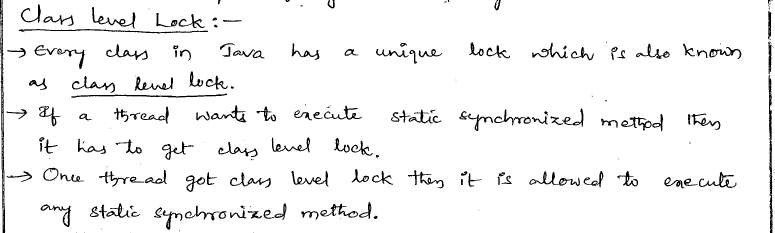 Class level Lock :—
→ Every class in Java has a unique lock which is also known
as class level lock.
→ If a thread wants to execute static synchronized method then
it has to get class level lock.
→ Once thread got class level lock then it is allowed to execute
any static synchronized method.